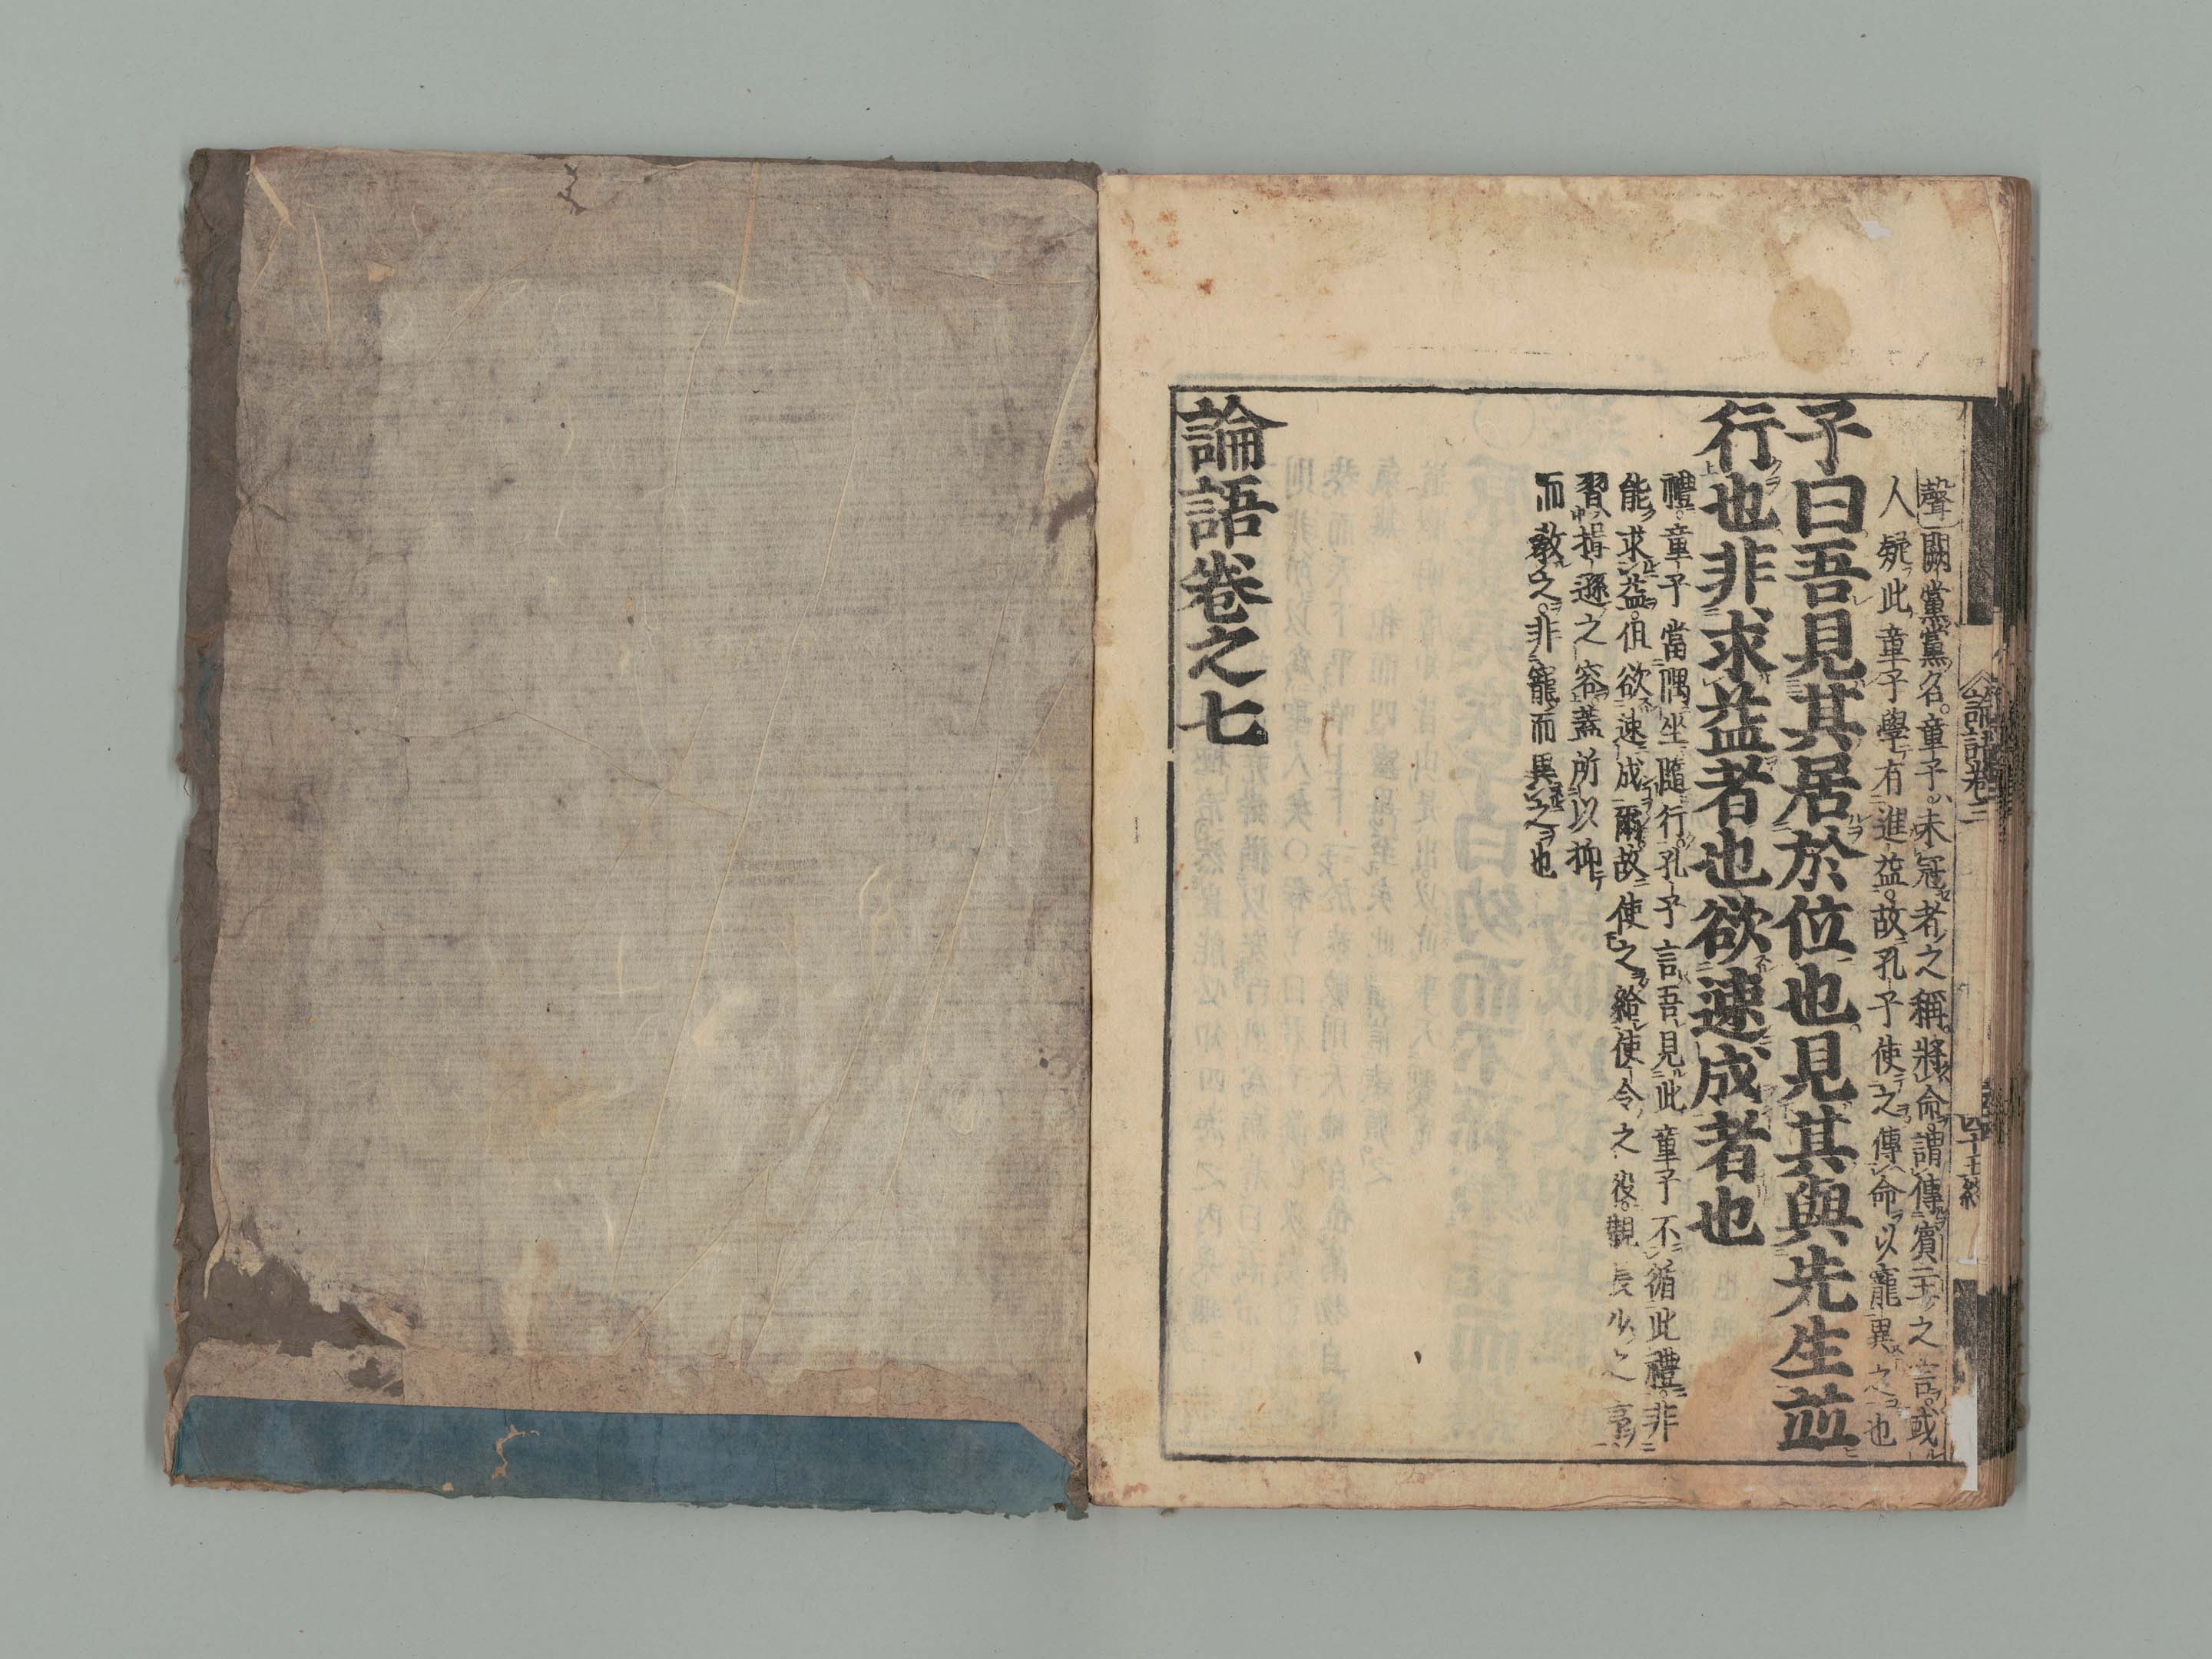 聲○闕黨黨名童子未冠者之稱將命謂傳賓主之言或
人疑此童子學有進益故孔子使之傳命以寵異之也
子曰吾見其居於位也見其與先生並
行也非求益者也欲速成者也
禮童子當隅坐隨行孔子言吾見此童子不循此禮非
能求益但欲速成爾故使之給使令之役觀長少之序
習揖遜之容蓋所以抑
而教之非寵而異之也
論語卷之七